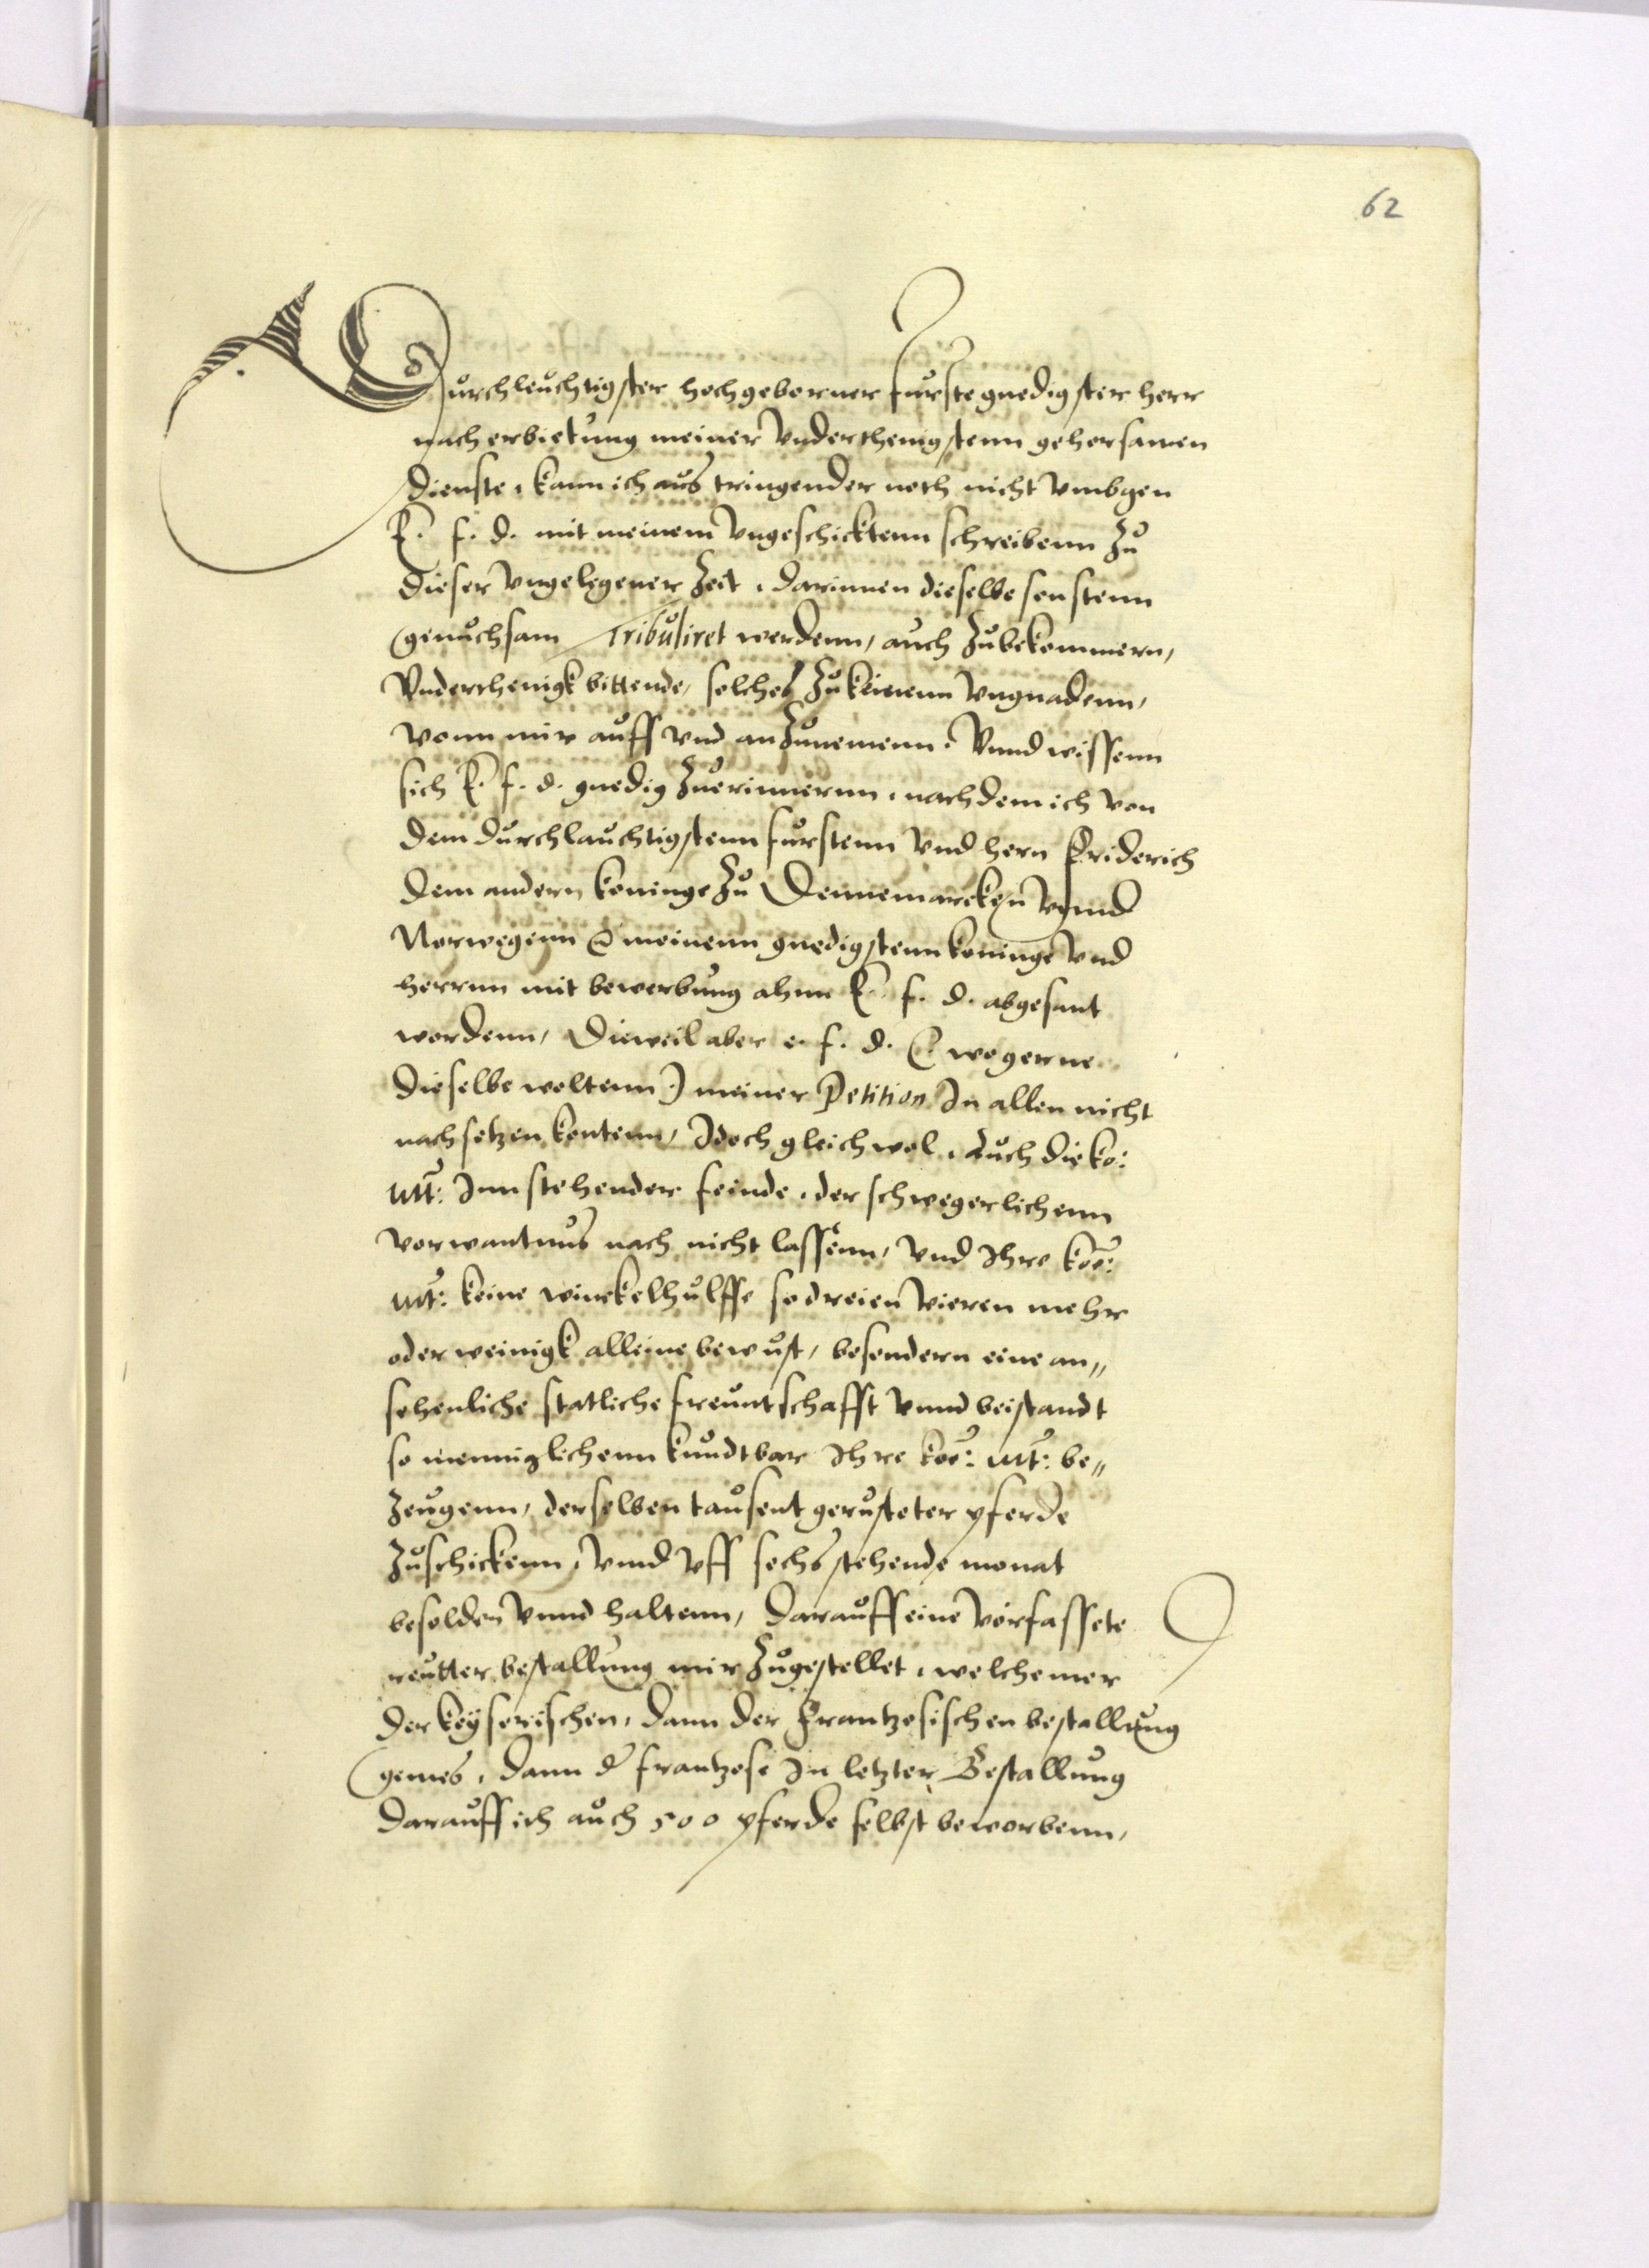 62
Durchleuchtigster hochgeborner furste gnedigster herr
nach erbietung meiner Vnderthenigstenn gehorsamen
dienste, kann ich aus tringender noth nicht vmbgen
E. f. d. mit meinem Vngeschicktenn schreibenn zu
dieser Vngelegener zeit, darinnen dieselbe sonstenn
genuchsam Tribuliret werdenn, auch zubekommern,
Vnderthenigk bittende, solches zu keinenn Vngnadenn,
vonn mir auff vnd anzunemenn. Vnnd wissenn
sich E. f. d. gnedig zuerinnernn, nach dem ich von
dem durchlauchtigstenn furstenn Vnd hern Friderich
dem andern koninge zu Dennemarcken vnnd
Norwegenn &c meinenn gnedigstenn koninge Vnd
herrnn mit bewerbung ahnn E. f. d. abgesant
wordenn, Dieweil aber e. f. d. (: wo gerne
dieselbe woltenn :) meiner Petition In allen nicht
nachsetzen kontenn, Idoch gleichwol, auch die ko:
Mt: Inn stehender feinde, der schwegerlichenn
vorwantnus nach nicht lassenn, vnd Ihre koe:
Mt: keine winckelhulffe so dreien vieren mehr
oder weinigk alleine bewust, besondern eine an„
sehenliche statliche freuntschafft vnnd beistandt
so menniglichenn kundtbar Ihre koe: Mt: be„
zeugenn, derselben tausent gerusteter pferde
zuschickenn, vnnd vff sechs stehende monat
besolden vnnd haltenn, darauff eine vorfassete
reutter bestallung mir zugestellet, welche mer
der keyserischen, dann der Frantzosischen bestallung
gemes, dann d' frantzose In letzter Bestallung
darauff ich auch 500 pferde selbst beworbenn,